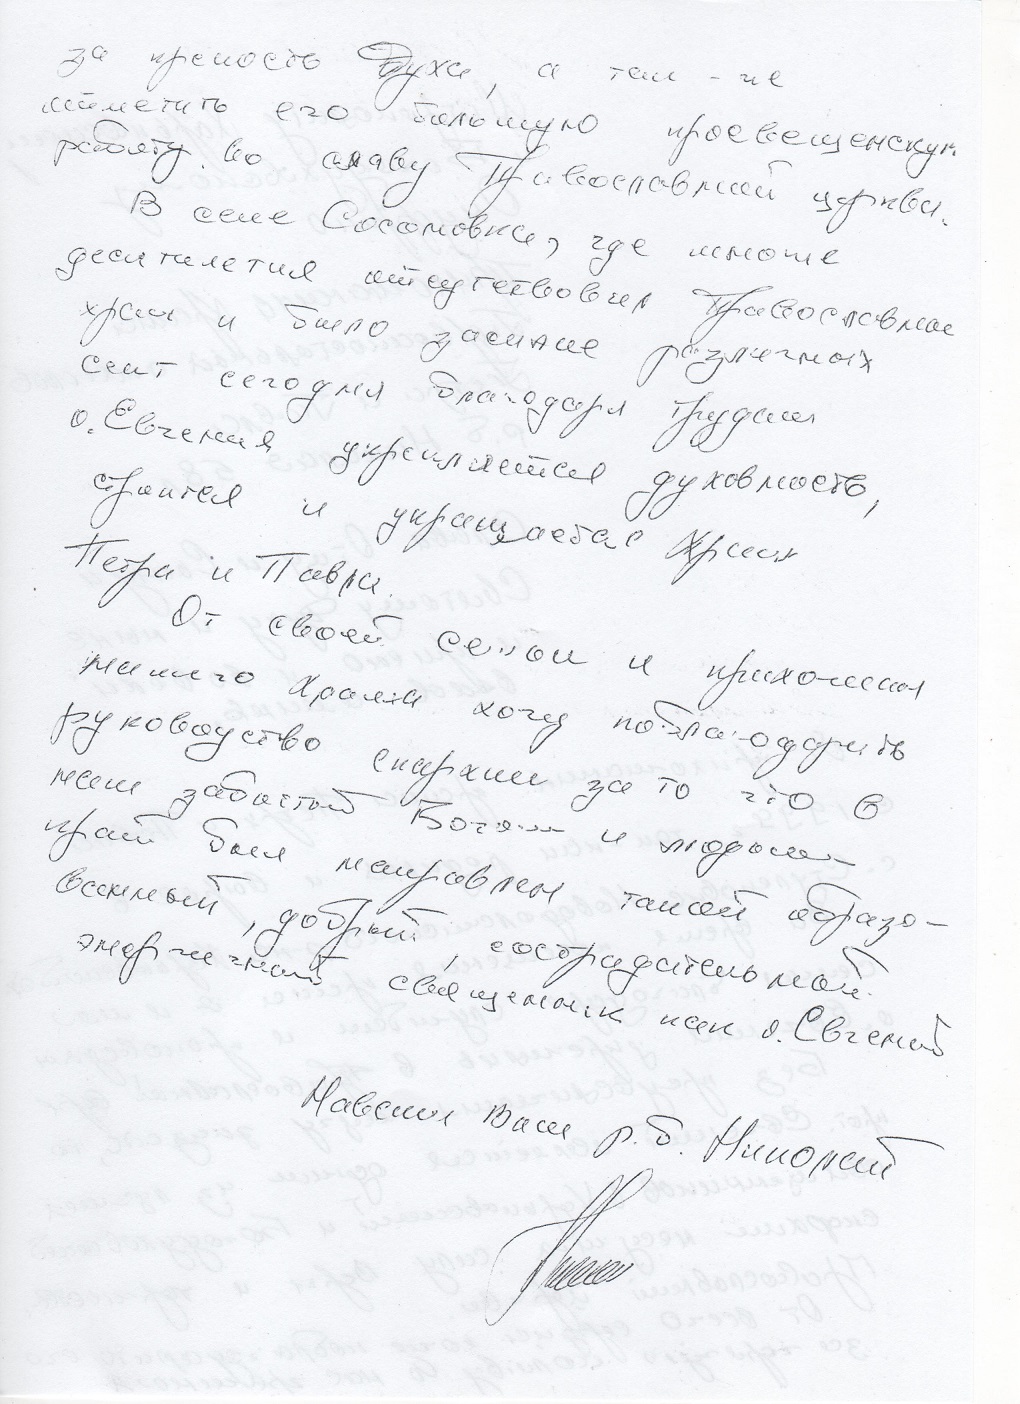 за крепость Духа, а так-же
отметить его большую просвещенскую
работу во славу Православной церкви.
В селе Сосновка, где многие
десятилетия отсутствовал Православный
храм и было засилие различных
сект сегодня благодаря трудам
о. Евгения укрепляется духовность,
строится и украшается Храм
Петра и Павла.
От своей семьи и прихожан
нашего Храма хочу поблагодарить
руководство епархии за то что в
наш забытой Богом и людьми
край был направлен такой образо-
ванный, добрый, сострадательный
энергичный священик как о. Евгений
Навеки Ваш р.б. Николай